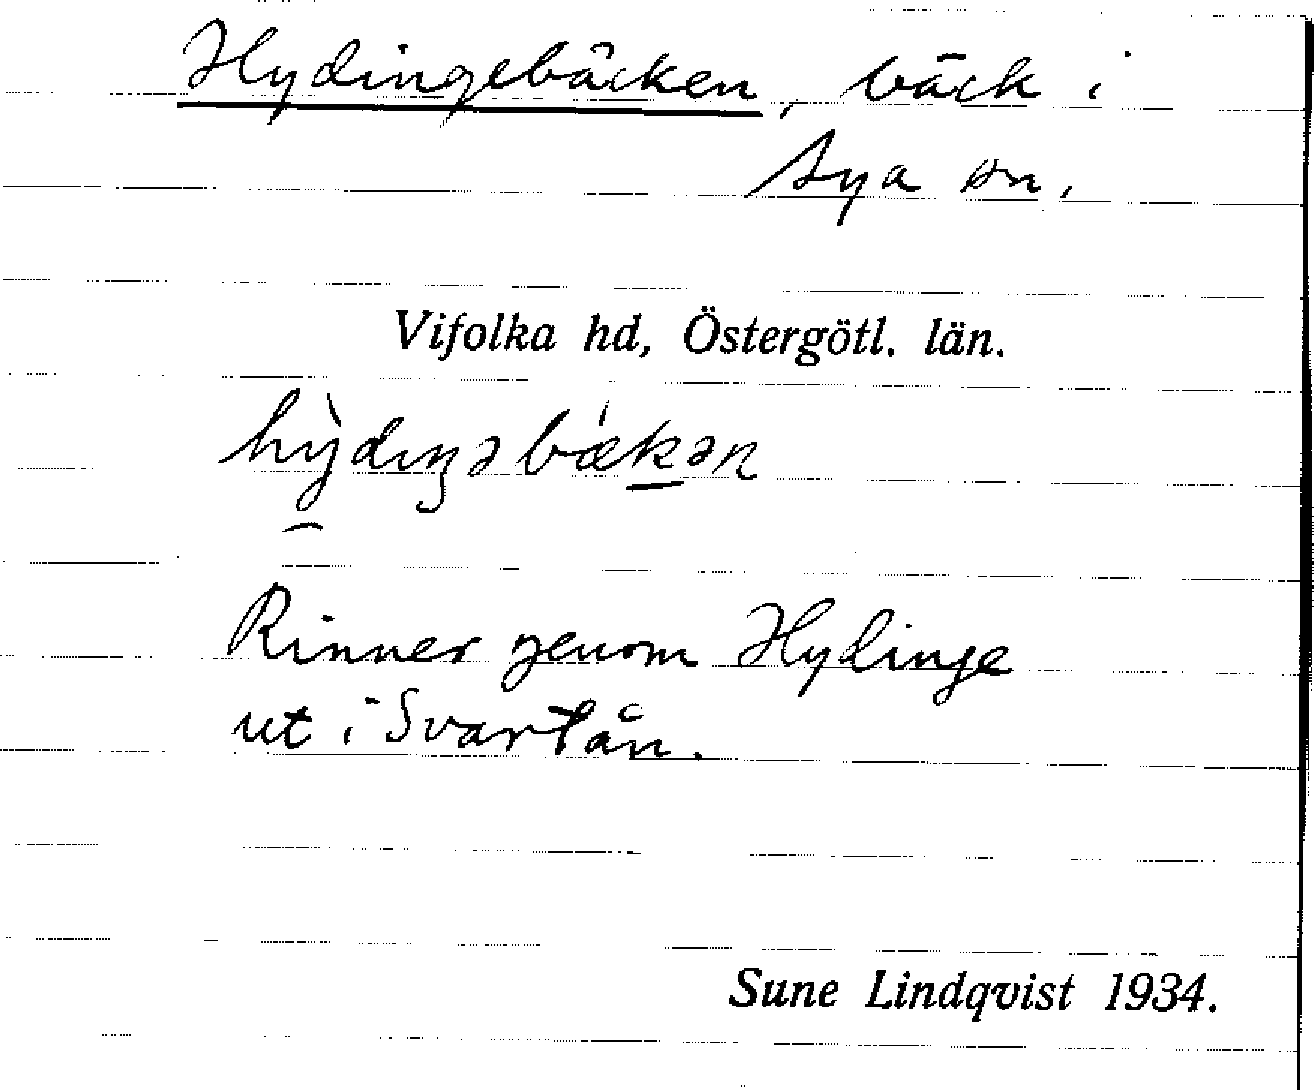 Hydingebäcken, bäck i
Sya sn.
Vifolka hd, Östergötl. län.
hỳdıŋəbǽkən
Rinner genom Hydinge
ut i Svartån.
Sune Lindqvist 1934.